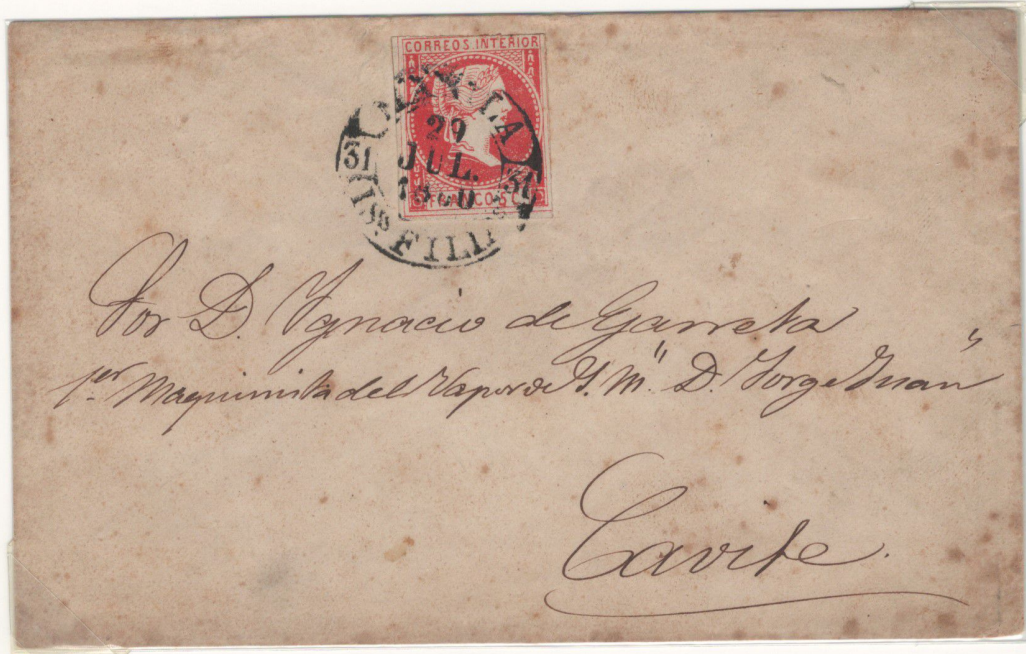 CORREOS INTERIOR
MANILA
29
JUL.
1860
31
ISS FILIP
FRANCO 5 C
Por D. Ygnacio de Garreta
1er Maquinista del Vapor de S. M. "D. Jorge Juan"
Cavite.